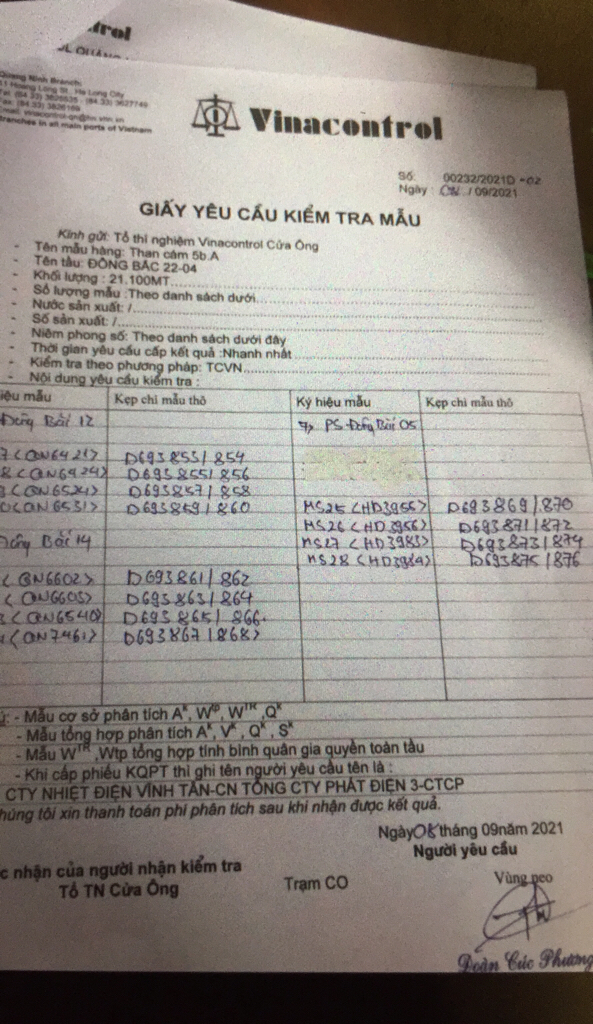 Quang Ninh Branch:
11 Hoang Long St., Ha Long City
branches in all main ports of Vietnam
Vinacontrol
Số: 00232/2021D -02
Ngày : /09/2021
GIẤY YÊU CẦU KIỂM TRA MẪU
Kính gửi: Tổ thí nghiệm Vinacontrol Cửa Ông
- Tên mẫu hàng: Than cám 5b.A
- Tên tàu: ĐÔNG BẮC 22-04
- Khối lượng : 21.100MT
- Số lượng mẫu :Theo danh sách dưới
- Nước sản xuất: /
- Số sản xuất: /
- Niêm phong số: Theo danh sách dưới đây
- Thời gian yêu cầu cấp kết quả :Nhanh nhất
- Kiểm tra theo phương pháp: TCVN
- Nội dung yêu cầu kiểm tra :
iệu mẫu Kẹp chì mẫu thô Ký hiệu mẫu Kẹp chì mẫu thô
Đông Bắc 12 PS Đông Bắc 05
7 <QN6421> D693853/854
8 <QN6424> D693855/856
<QN6524> D693857/858
<QN6531> D693859/860 MS25 <HD3955> D693869/870
MS26 <HD3956> D693871/872
Đông Bắc 14 MS27 <HD3983> D693873/874
MS28 <HD3984> D693875/876
<QN6602> D693861/862
<QN6603> D693863/864
<QN6540> D693865/866
<QN7461> D693867/868
- Mẫu cơ sở phân tích Aᵏ, Wᵖ, Wᵀᴿ, Qᵏ
- Mẫu tổng hợp phân tích Aᵏ, Vᵏ, Qᵏ, Sᵏ
- Mẫu Wᵀᴿ, Wtp tổng hợp tính bình quân gia quyền toàn tàu
- Khi cấp phiếu KQPT thì ghi tên người yêu cầu tên là :
CTY NHIỆT ĐIỆN VĨNH TÂN-CN TỔNG CTY PHÁT ĐIỆN 3-CTCP
húng tôi xin thanh toán phí phân tích sau khi nhận được kết quả.
Ngày 08 tháng 09 năm 2021
Người yêu cầu
c nhận của người nhận kiểm tra
Tổ TN Cửa Ông Trạm CO Vùng neo
Đoàn Cúc Phương